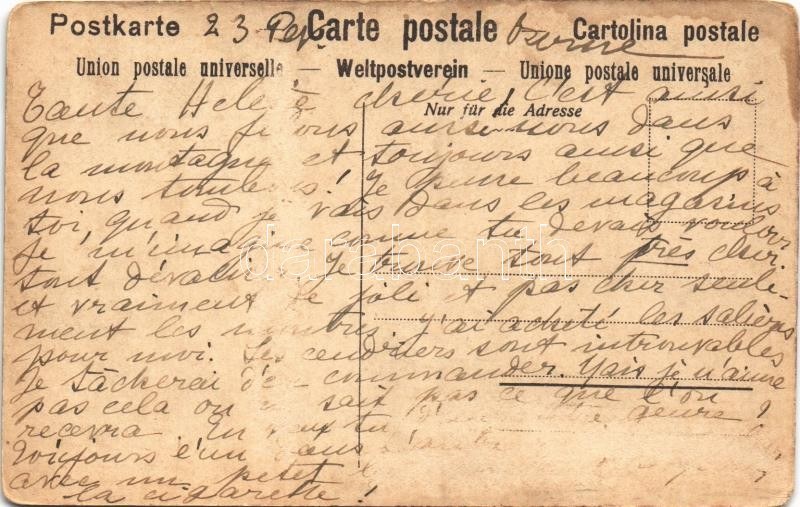 Postkarte 23 Carte postale Cartolina postale
Union postale universelle — Weltpostverein — Unione postale universale
Nur für die Adresse
Tante chérie! C'est ainsi
que nous nous dans
la montagne et toujours ainsi que
nous tombons! Je pense beaucoup à
toi, quand je vais dans les magasins
je m'imagine comme tu devais vouloir
tout dévaliser. Je trouve tout très cher.
et vraiment de joli et pas cher seule-
ment les montres, j'ai acheté les salières
pour moi. Les cendriers sont introuvables
Je tâcherai d'en commander. Mais je n'aime
pas cela on sait pas ce que l'on
recevra. En veux tu genre?
Toujours d'un
avec un petit
la cigarette!
darabanth